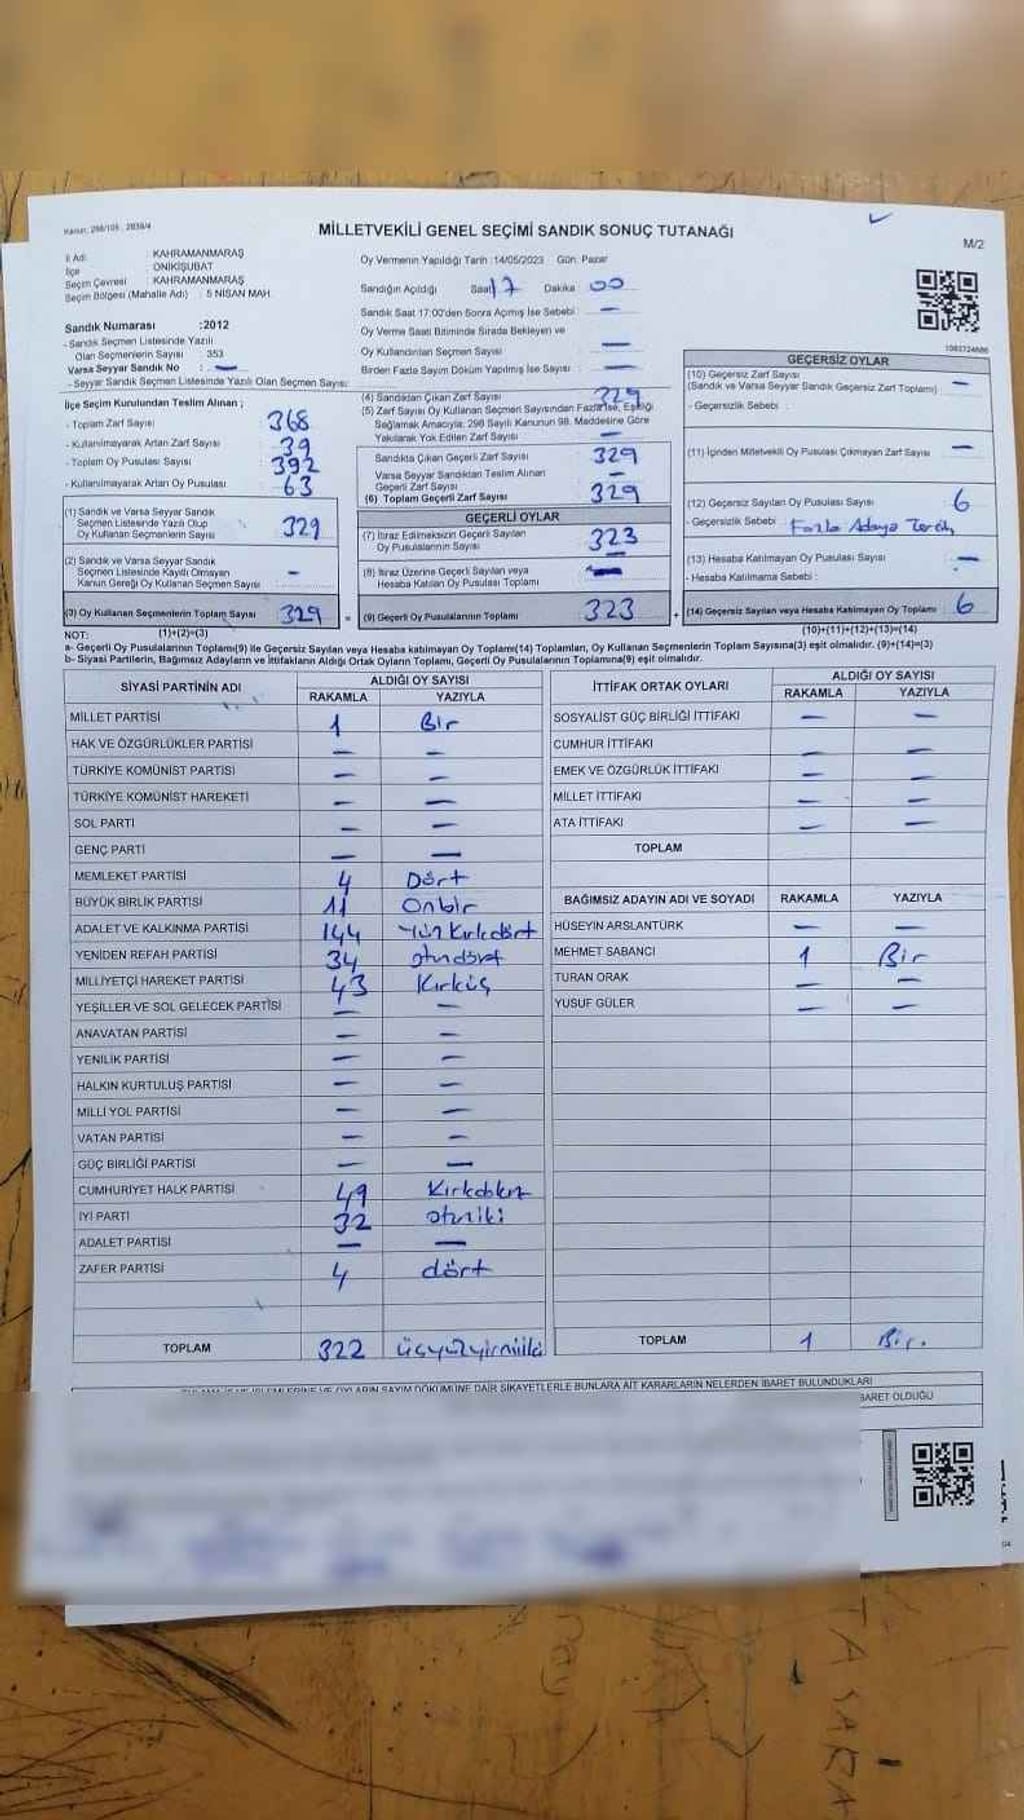 MİLLETVEKİLİ GENEL SEÇİMİ SANDIK SONUÇ TUTANAĞI
M/2
İl Adı : KAHRAMANMARAŞ
İlçe : ONİKİŞUBAT
Seçim Çevresi : KAHRAMANMARAŞ
Seçim Bölgesi (Mahalle Adı) : 5 NİSAN MAH.
Sandık Numarası :2012
- Sandık Seçmen Listesinde Yazılı
Olan Seçmenlerin Sayısı : 353
Varsa Seyyar Sandık No : —
- Seyyar Sandık Seçmen Listesinde Yazılı Olan Seçmen Sayısı:
İlçe Seçim Kurulundan Teslim Alınan ;
- Toplam Zarf Sayısı : 368
- Kullanılmayarak Artan Zarf Sayısı : 39
- Toplam Oy Pusulası Sayısı : 392
- Kullanılmayarak Artan Oy Pusulası : 63
(1) Sandık ve Varsa Seyyar Sandık
Seçmen Listesinde Yazılı Olup
Oy Kullanan Seçmenlerin Sayısı : 329
(2) Sandık ve Varsa Seyyar Sandık
Seçmen Listesinde Kayıtlı Olmayan
Kanun Gereği Oy Kullanan Seçmen Sayısı : —
(3) Oy Kullanan Seçmenlerin Toplam Sayısı 329 =
(1)+(2)=(3)
Oy Vermenin Yapıldığı Tarih :14/05/2023 Gün: Pazar
Sandığın Açıldığı Saat 17 Dakika 00
Sandık Saat 17:00'den Sonra Açılmış İse Sebebi : —
Oy Verme Saati Bitiminde Sırada Bekleyen ve
Oy Kullandırılan Seçmen Sayısı : —
Birden Fazla Sayım Döküm Yapılmış İse Sayısı : —
(4) Sandıktan Çıkan Zarf Sayısı : 329
(5) Zarf Sayısı Oy Kullanan Seçmen Sayısından Fazla ise, Eşitliği
Sağlamak Amacıyla; 298 Sayılı Kanunun 98. Maddesine Göre
Yakılarak Yok Edilen Zarf Sayısı : —
Sandıkta Çıkan Geçerli Zarf Sayısı : 329
Varsa Seyyar Sandıktan Teslim Alınan
Geçerli Zarf Sayısı : —
(6) Toplam Geçerli Zarf Sayısı : 329
GEÇERLİ OYLAR
(7) İtiraz Edilmeksizin Geçerli Sayılan
Oy Pusulalarının Sayısı : 323
(8) İtiraz Üzerine Geçerli Sayılan veya
Hesaba Katılan Oy Pusulası Toplamı : —
(9) Geçerli Oy Pusulalarının Toplamı : 323 +
GEÇERSİZ OYLAR
(10) Geçersiz Zarf Sayısı
(Sandık ve Varsa Seyyar Sandık Geçersiz Zarf Toplamı) : —
- Geçersizlik Sebebi :
(11) İçinden Milletvekili Oy Pusulası Çıkmayan Zarf Sayısı : —
(12) Geçersiz Sayılan Oy Pusulası Sayısı : 6
- Geçersizlik Sebebi : Fazla Adaya Tercih
(13) Hesaba Katılmayan Oy Pusulası Sayısı : —
- Hesaba Katılmama Sebebi :
(14) Geçersiz Sayılan veya Hesaba Katılmayan Oy Toplamı : 6
(10)+(11)+(12)+(13)=(14)
NOT:
a- Geçerli Oy Pusulalarının Toplamı(9) ile Geçersiz Sayılan veya Hesaba katılmayan Oy Toplamı(14) Toplamları, Oy Kullanan Seçmenlerin Toplam Sayısına(3) eşit olmalıdır. (9)+(14)=(3)
b- Siyasi Partilerin, Bağımsız Adayların ve İttifakların Aldığı Ortak Oyların Toplamı, Geçerli Oy Pusulalarının Toplamına(9) eşit olmalıdır.
SİYASİ PARTİNİN ADI ALDIĞI OY SAYISI
RAKAMLA YAZIYLA
MİLLET PARTİSİ 1 Bir
HAK VE ÖZGÜRLÜKLER PARTİSİ — —
TÜRKİYE KOMÜNİST PARTİSİ — —
TÜRKİYE KOMÜNİST HAREKETİ — —
SOL PARTİ — —
GENÇ PARTİ — —
MEMLEKET PARTİSİ 4 Dört
BÜYÜK BİRLİK PARTİSİ 11 Onbir
ADALET VE KALKINMA PARTİSİ 144 Yüz Kırkdört
YENİDEN REFAH PARTİSİ 34 otuzdört
MİLLİYETÇİ HAREKET PARTİSİ 43 Kırküç
YEŞİLLER VE SOL GELECEK PARTİSİ — —
ANAVATAN PARTİSİ — —
YENİLİK PARTİSİ — —
HALKIN KURTULUŞ PARTİSİ — —
MİLLİ YOL PARTİSİ — —
VATAN PARTİSİ — —
GÜÇ BİRLİĞİ PARTİSİ — —
CUMHURİYET HALK PARTİSİ 49 Kırkdokuz
İYİ PARTİ 32 otuziki
ADALET PARTİSİ — —
ZAFER PARTİSİ 4 dört
TOPLAM 322 üçyüzyirmiiki
İTTİFAK ORTAK OYLARI ALDIĞI OY SAYISI
RAKAMLA YAZIYLA
SOSYALİST GÜÇ BİRLİĞİ İTTİFAKI — —
CUMHUR İTTİFAKI — —
EMEK VE ÖZGÜRLÜK İTTİFAKI — —
MİLLET İTTİFAKI — —
ATA İTTİFAKI — —
TOPLAM
BAĞIMSIZ ADAYIN ADI VE SOYADI RAKAMLA YAZIYLA
HÜSEYİN ARSLANTÜRK — —
MEHMET SABANCI 1 Bir
TURAN ORAK — —
YUSUF GÜLER — —
TOPLAM 1 Bir.
OYLARIN SAYIM DÖKÜMÜNE DAİR ŞİKAYETLERLE BUNLARA AİT KARARLARIN NELERDEN İBARET BULUNDUKLARI
İBARET OLDUĞU